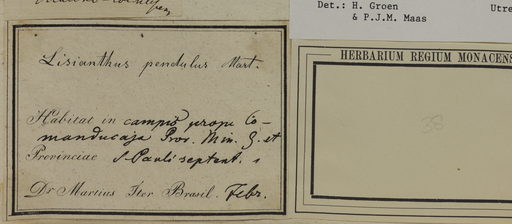 Det.: H. Groen
& P.J.M. Maas
Lisianthus pendulus Mart.
Habitat in campis prope Co-
manducaja Prov. Min. G. et
Provinciae S. Pauli septent.
Dr Martius Iter Brasil. Febr.
HERBARIUM REGIUM MONACENS
38